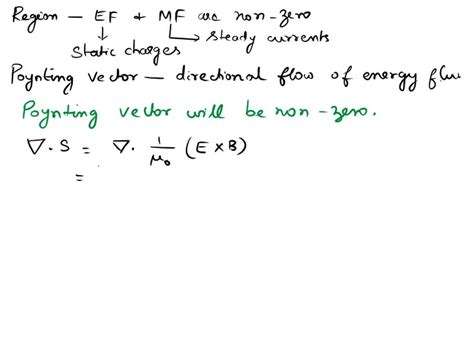 Region — EF & MF are non-zero
Static charges
Steady currents
Poynting vector — directional flow of energy flu
Poynting vector will be non-zero.
∇. S = ∇. 1/μ₀ (E × B)
=